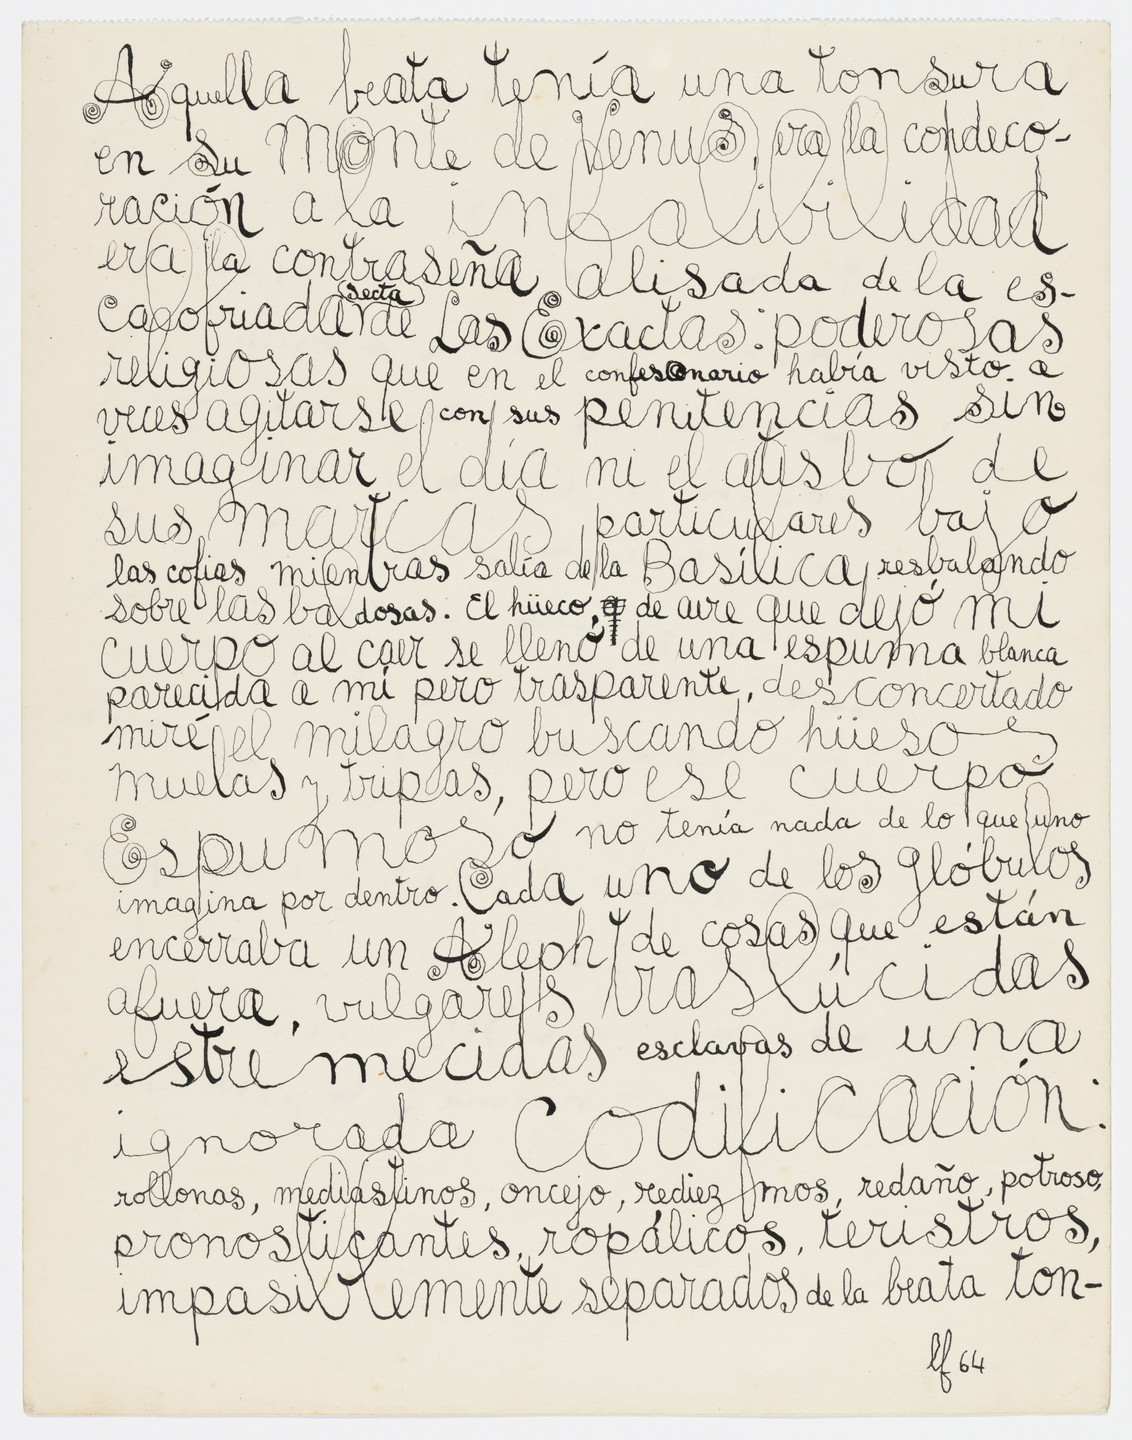 Aquella beata tenía una tonsura
en su Monte de Venus, era la condeco-
ración a la infalibilidad
era la contraseña alisada de la es-
calofriada secta de Las Exactas: poderosas
religiosas que en el confesonario había visto a
veces agitarse con sus penitencias sin
imaginar el día ni el atisbo de
sus marcas particulares bajo
las cofias mientras salía de la Basílica resbalando
sobre las baldosas. El hüeco, de aire que dejó mi
cuerpo al caer se llenó de una espuma blanca
parecida a mí pero trasparente, desconcertado
miré el milagro buscando hüesos
muelas y tripas, pero ese cuerpo
Espumoso no tenía nada de lo que uno
imagina por dentro. Cada uno de los glóbulos
encerraba un Aleph de cosas que están
afuera, vulgares traslúcidas
estremecidas esclavas de una
ignorada Codificación:
rollonas, mediastinos, oncejo, rediezmos, redaño, potroso,
pronosticantes, ropálicos, teristros,
impasiblemente separados de la beata ton-
lf 64